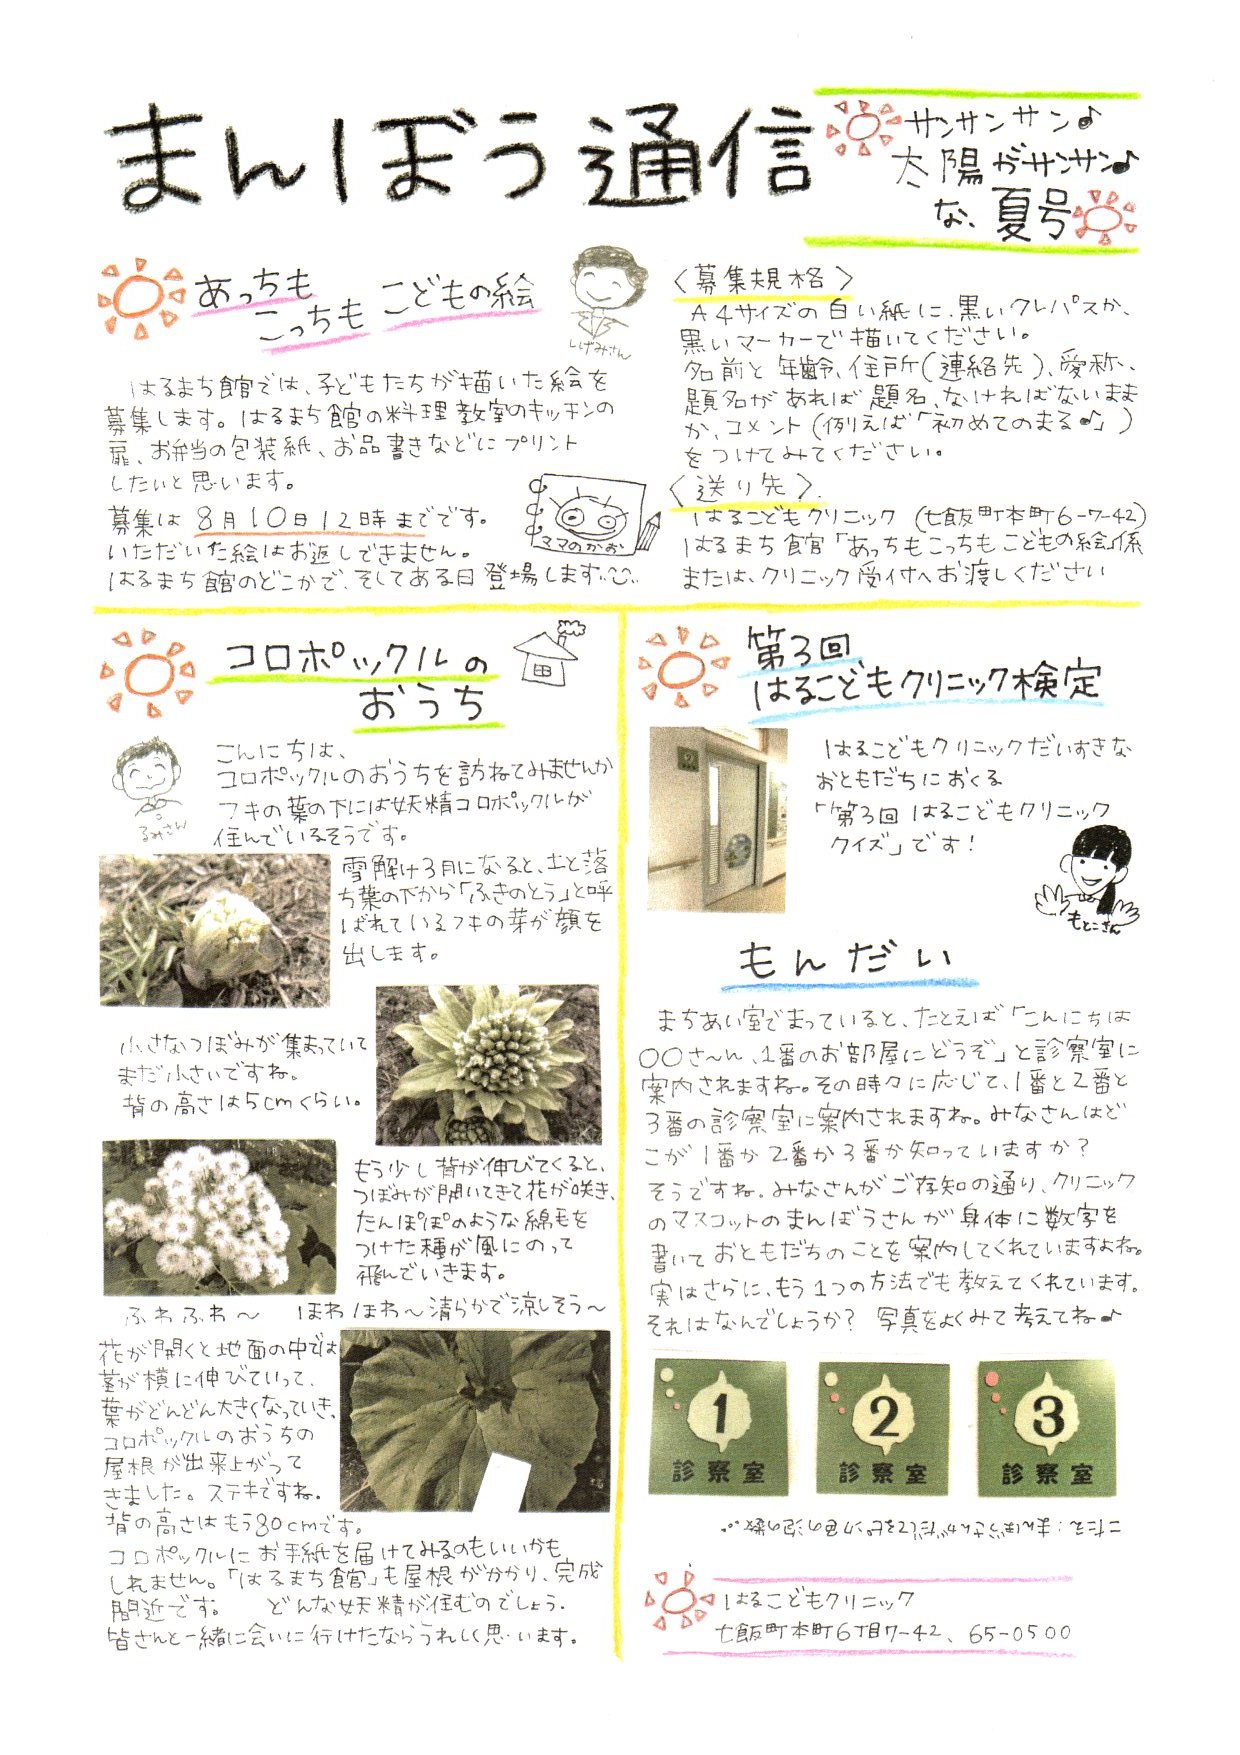 まんぼう通信
サンサンサン♪
太陽がサンサン♪
な、夏号
あっちも
こっちも こどもの絵
しげみさん
はるまち館では、子どもたちが描いた絵を
募集します。はるまち館の料理教室のキッチンの
扉、お弁当の包装紙、お品書きなどにプリント
したいと思います。
募集は 8月10日12時までです。
いただいた絵はお返しできません。
はるまち館のどこかで、そしてある日登場します
ママのかお
〈募集規格〉
A4サイズの白い紙に、黒いクレパスか、
黒いマーカーで描いてください。
名前と年齢、住所(連絡先)、愛称、
題名があれば題名、なければないまま
か、コメント(例えば「初めてのまる♪」)
をつけてみてください。
〈送り先〉
はるこどもクリニック (七飯町本町6-7-42)
はるまち館「あっちもこっちもこどもの絵」係
または、クリニック受付へお渡しください
コロポックルの
おうち
るみさん
こんにちは、
コロポックルのおうちを訪ねてみませんか
フキの葉の下には妖精コロポックルが
住んでいるそうです。
雪解け3月になると、土と落
ち葉の下から「ふきのとう」と呼
ばれているフキの芽が顔を
出します。
小さなつぼみが集まっていて
まだ小さいですね。
背の高さは5cmくらい。
もう少し背が伸びてくると、
つぼみが開いてきて花が咲き、
たんぽぽのような綿毛を
つけた種が風にのって
飛んでいきます。
ふわふわ〜 ほわほわ〜清らかで涼しそう〜
花が開くと地面の中では
茎が横に伸びていって、
葉がどんどん大きくなっていき、
コロポックルのおうちの
屋根が出来上がって
きました。ステキですね。
背の高さはもう80cmです。
コロポックルにお手紙を届けてみるのもいいかも
しれません。「はるまち館」も屋根がかかり、完成
間近です。 どんな妖精が住むのでしょう。
皆さんと一緒に会いに行けたならうれしく思います。
第3回
はるこどもクリニック検定
はるこどもクリニックだいすきな
おともだちにおくる
「第3回 はるこどもクリニック
クイズ」です!
もとこさん
もんだい
まちあい室でまっていると、たとえば「こんにちは
〇〇さ〜ん、1番のお部屋にどうぞ」と診察室に
案内されますね。その時々に応じて、1番と2番と
3番の診察室に案内されますね。みなさんはど
こが1番か2番か3番か知っていますか?
そうですね。みなさんがご存知の通り、クリニック
のマスコットのまんぼうさんが身体に数字を
書いておともだちのことを案内してくれていますよね。
実はさらに、もう1つの方法でも教えてくれています。
それはなんでしょうか? 写真をよくみて考えてね♪
1
診察室
2
診察室
3
診察室
こたえ:まんぼうさんがだしてるピンクの色の泡の数。
はるこどもクリニック
七飯町本町6丁目7-42、65-0500